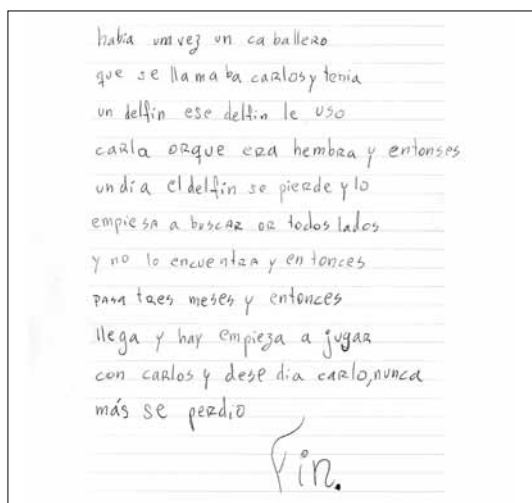 había um vez un caballero
que se llamaba carlos y tenia
un delfin ese delfin le uso
carla orque era hembra y entonses
un día el delfin se pierde y lo
empiesa a buscar or todos lados
y no lo encuentra y entonces
pasa tres meses y entonces
llega y hay empieza a jugar
con carlos y dese dia carlo, nunca
más se perdio
Fin.